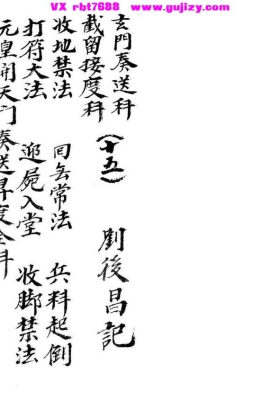 VX rbt7688 www.gujizy.com
玄門奏送科
截留接度科（十五） 劉後昌記
收地禁法 回喪常法 兵料起倒
打符大法 迎屍入堂 收脚禁法
元皇開天門奏送昇度全科